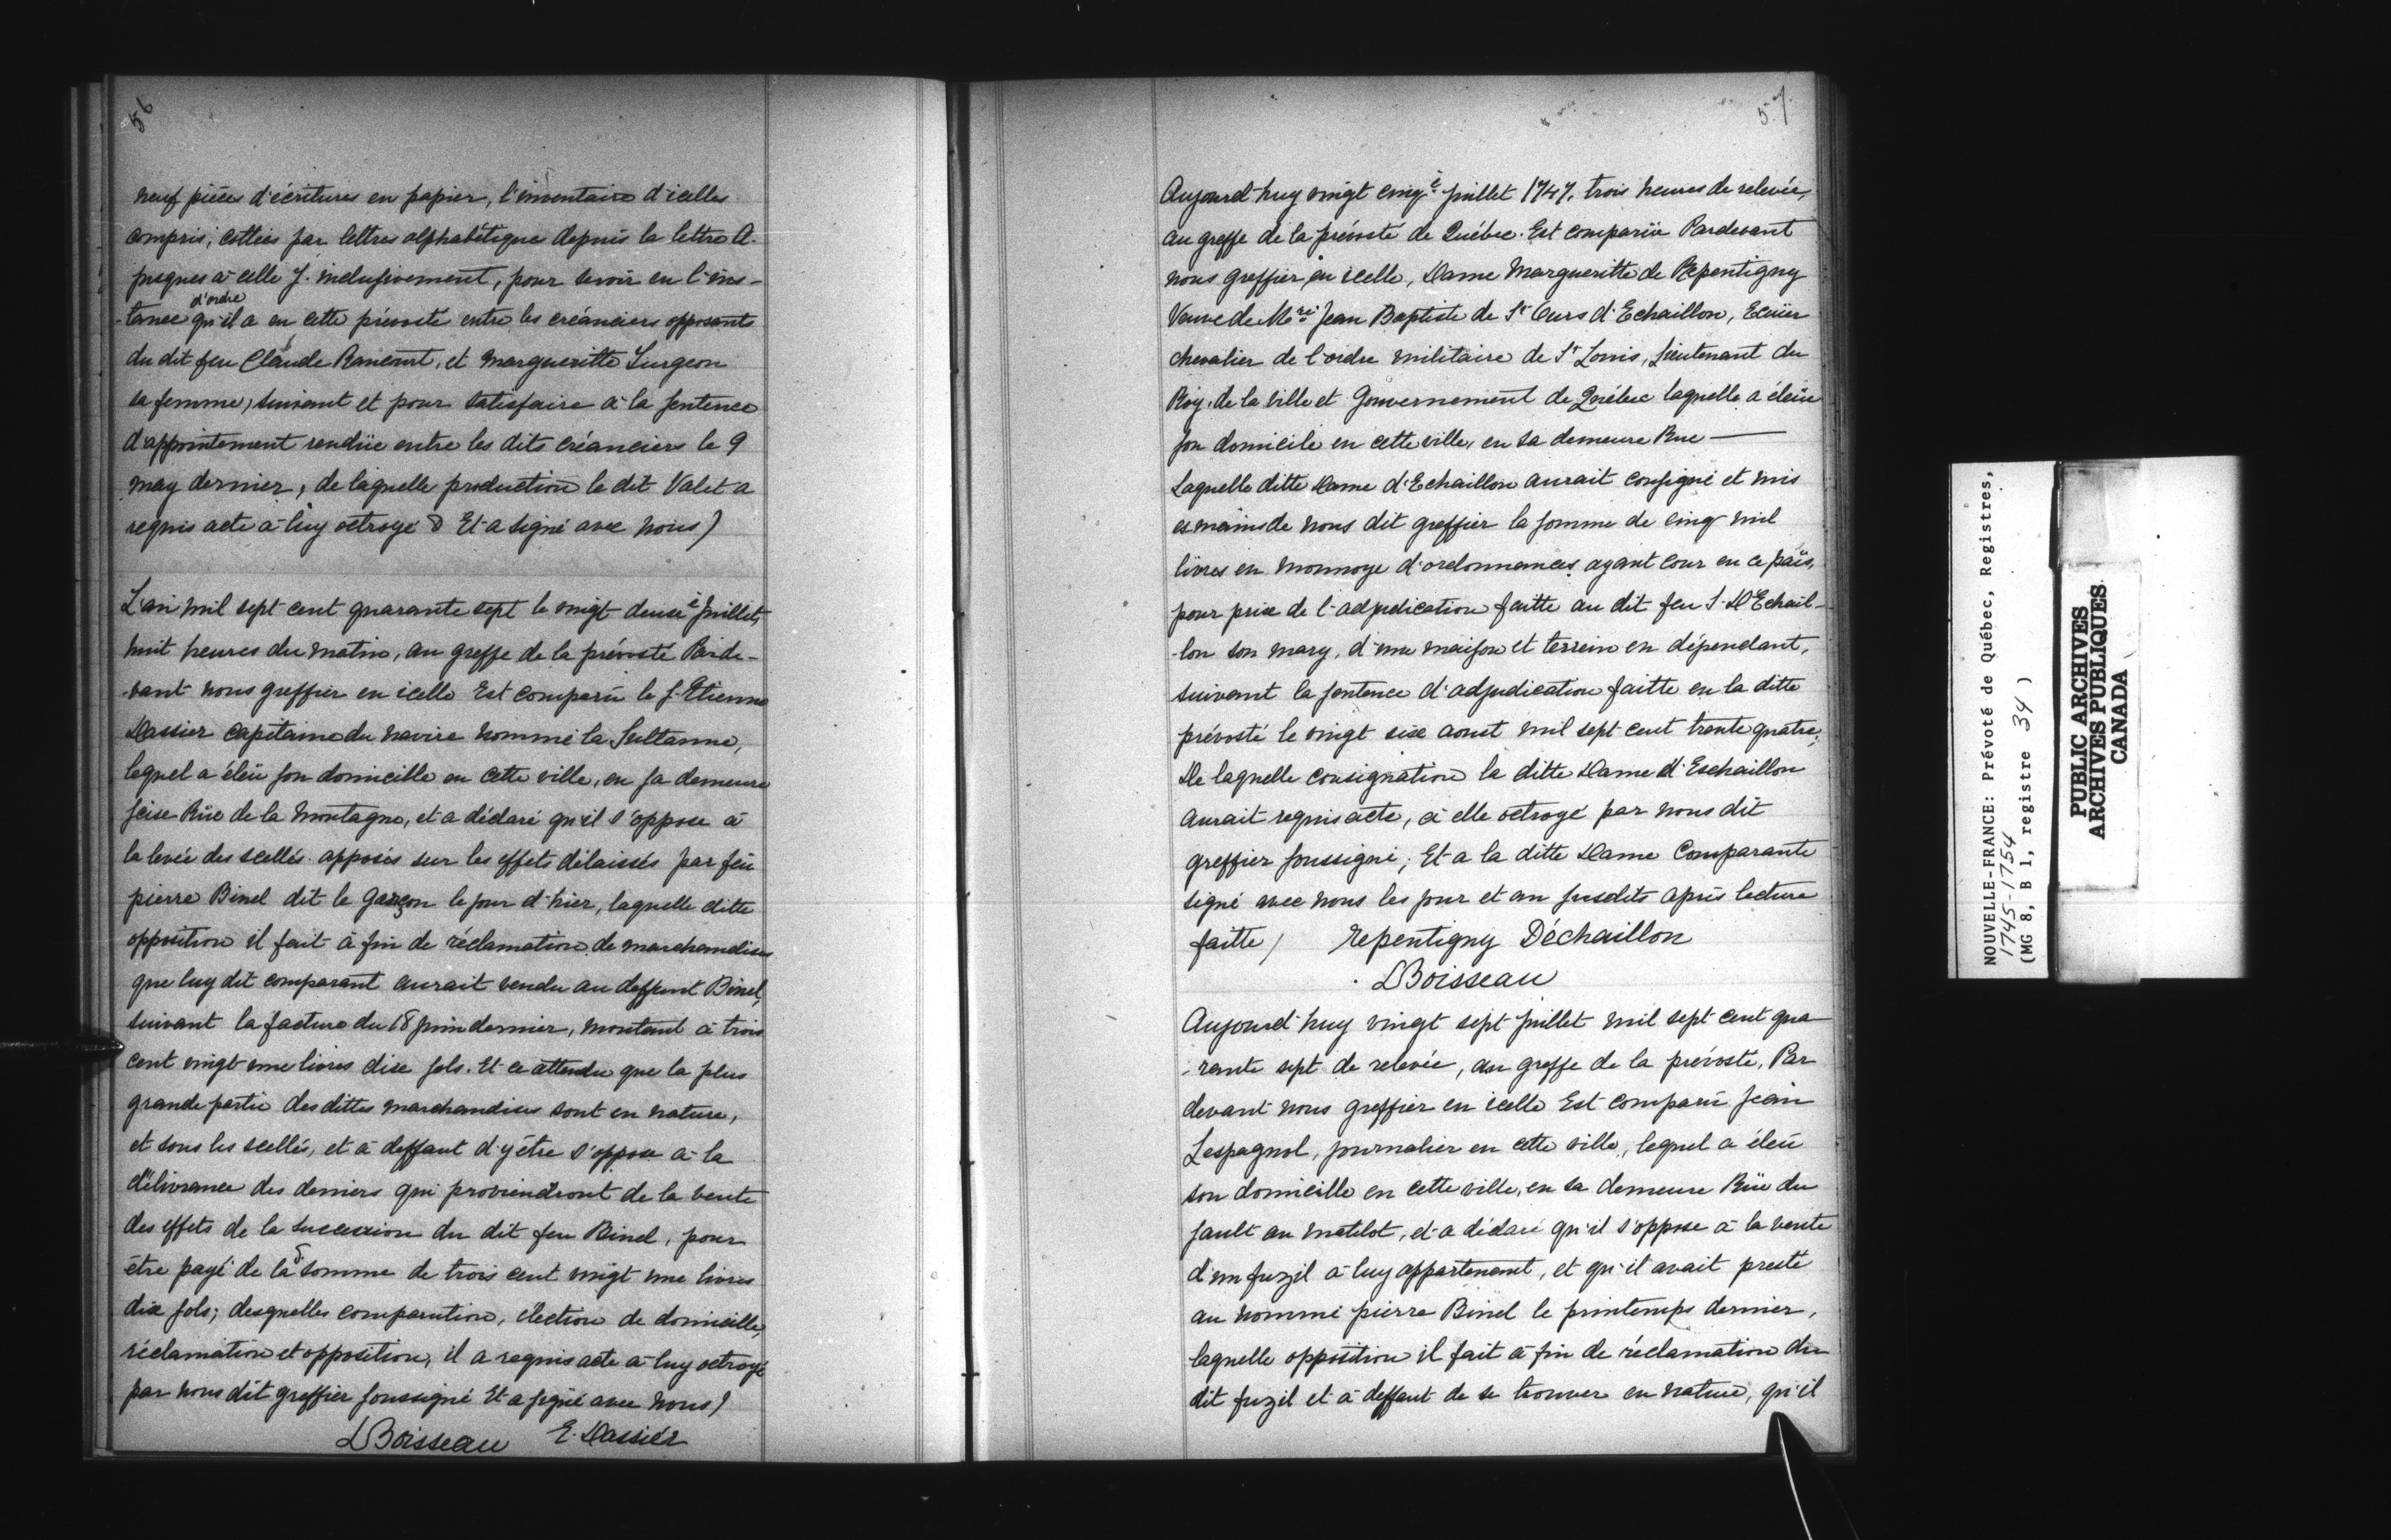 56
neuf pièces d'écritures en papier, l'inventaire d'icelles
compris, cottées par lettres alphabétique depuis la lettre A.
jusques à celle J. inclusivement, pour servir en l'ins-
d'ordre
-tance qu'il a en cette prévosté entre les créanciers opposants
du dit feu Claude Rancourt, et Margueritte Surgeon
sa femme, suivant et pour satisfaire à la sentence
d'appointement rendüe entre les dits créanciers le 9
may dernier, de laquelle production le dit Valet a
requis acte à luy octroyé & Et a signé avec nous)
L'an mil sept cent quarante sept le vingt deusiè Juillet,
huit heures du matin, au greffe de la prévosté Parde-
-vant nous greffier en icelle Est comparü le S. Etienne
Dassier capitaine du navire nommé la Sultanne,
lequel a éleü son domicille en cette ville, en sa demeure
scise Rüe de la Montagne, et a déclaré qu'il s'oppose à
la levée des scellés apposés sur les effets délaissés par feü
pierre Binel dit le Gascon le jour d'hier, laquelle ditte
opposition il fait à fin de réclamation de marchandises
que luy dit comparant aurait vendu au deffunt Binel,
suivant la facture du 18 juin dernier, montant à trois
cent vingt une livres dixe sols. Et ce attendu que la plus
grande partie des dittes marchandises sont en nature,
et sous les scellés, et à deffaut d'y être s'oppose à la
délivrance des deniers qui proviendront de la vente
des effets de la succession du dit feu Binel, pour
être payé de la d. somme de trois cent vingt une livres
dix sols; desquelles comparution, élection de domicille,
réclamation et opposition, il a requis acte à luy octroyé
par nous dit greffier soussigné Et a signé avec nous)
LBoisseau E. Dassier
57.
Aujourd'huy vingt cinqè Juillet 1747. trois heures de relevée,
au greffe de la prévosté de Québec. Est comparüe Pardevant
nous greffier en icelle, Dame Margueritte de Repentigny
Veuve de Mre Jean Baptiste de St Ours d'Echaillon, Ecüier
chevalier de l'ordre militaire de St Louis, Lieutenant du
Roy. de la ville et Gouvernement de Québec laquelle a éleüe
son domicile en cette ville, en sa demeure Rue —
Laquelle ditte Dame d'Echaillon aurait consigné et mis
es mains de nous dit greffier la somme de cinq mil
livres en monnoye d'ordonnances ayant cour en ce païs,
pour prix de l'adjudication faitte au dit feu S. D'Echail-
-lon son mary, d'une maison et terrein en dépendant,
suivant la sentence d'adjudication faitte en la ditte
prévosté le vingt sixe aoust mil sept cent trente quatre;
De laquelle consignation la ditte Dame d'Eschaillon
aurait requis acte, à elle octroyé par nous dit
greffier soussigné; Et a la ditte Dame Comparante
signé avec nous les jour et an susdits après lecture
faitte) Repentigny Déchaillon
LBoisseau
Aujourd'huy vingt sept Juillet mil sept cent qua
-rante sept de relevée, au greffe de la prévosté, Par
devant nous greffier en icelle Est comparü Jean
Lespagnol, journalier en cette ville, lequel a éleü
son domicille en cette ville, en sa demeure Rüe du
sault au matelot, et a déclaré qu'il s'oppose à la vente
d'un fuzil à luy appartenant, et qu'il avait presté
au nommé pierre Binel le printemps dernier,
laquelle opposition il fait à fin de réclamation du
dit fuzil et à deffaut de se trouver en nature, qu'il
NOUVELLE-FRANCE: Prévoté de Québec, Registres,
1745-1754
(MG 8, B 1, registre 34 )
PUBLIC ARCHIVES
ARCHIVES PUBLIQUES
CANADA